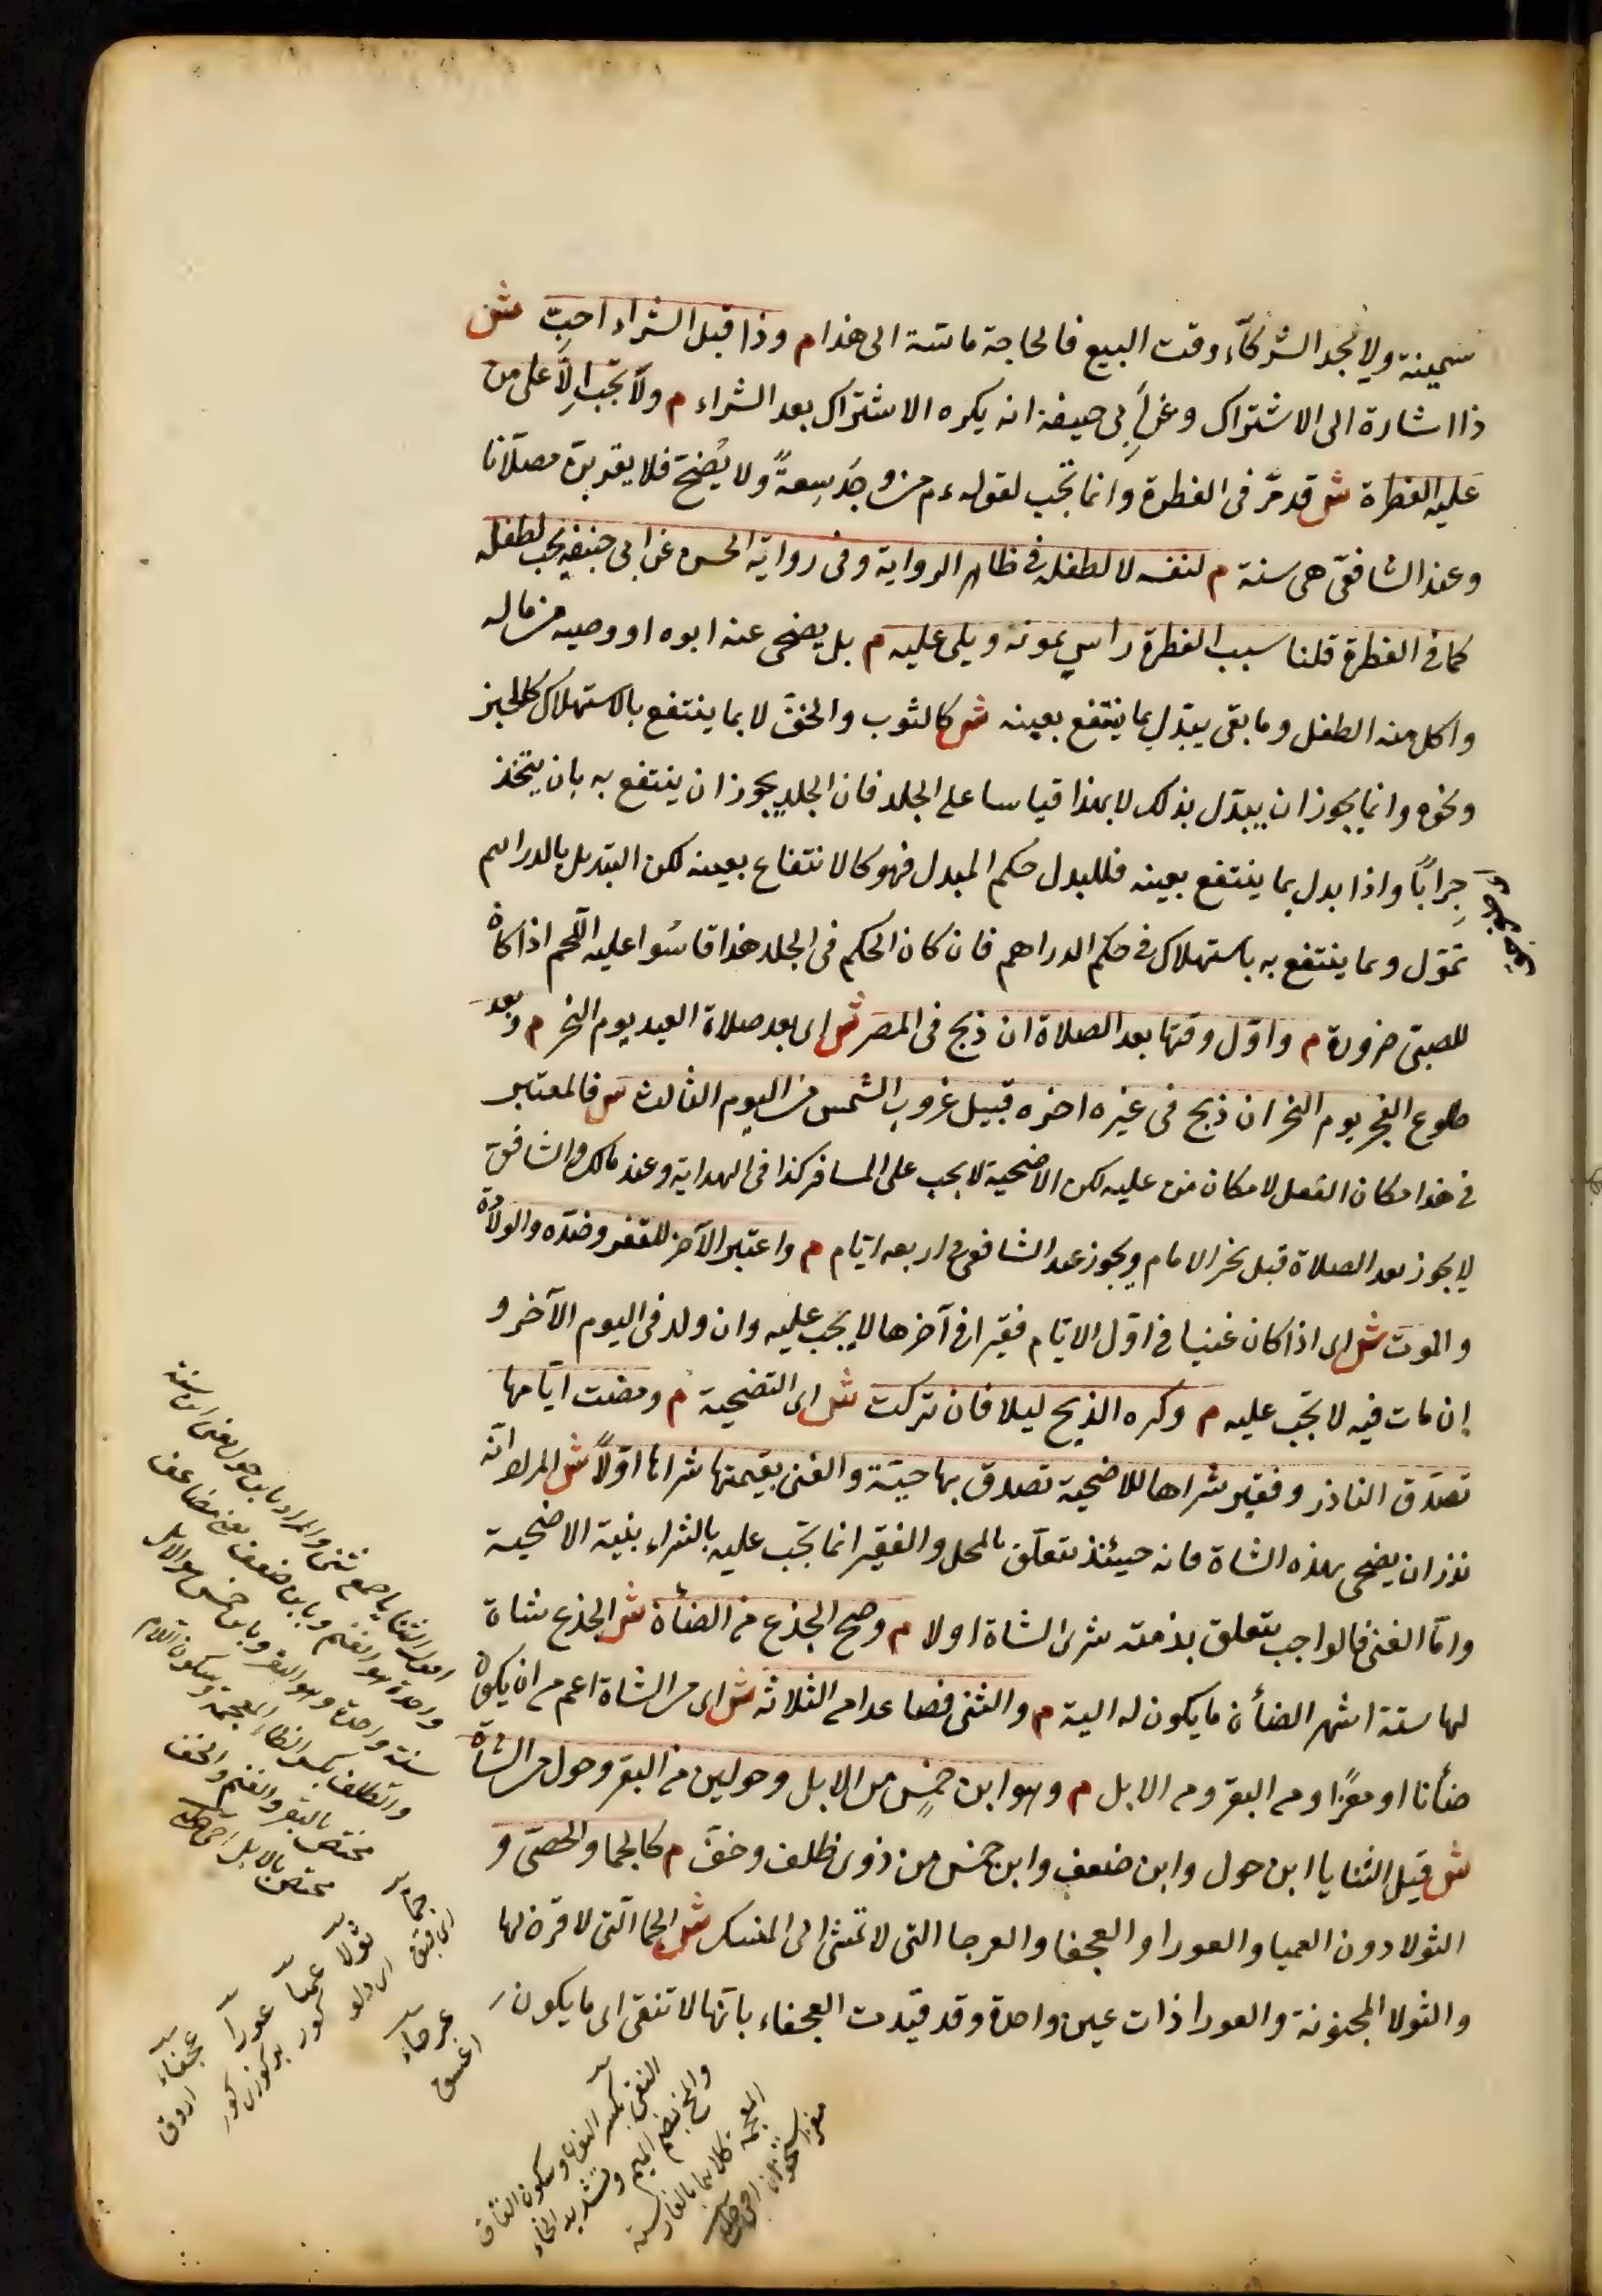 سمينة ولا يجد الشركآء وقت البيع فالحاجة ماسّة الى هذا م وذا قبل الشراء احبّ ش
ذا اشارة الى الاشتراك وعن أبِى حنيفة انه يكره الاشتراك بعد الشراء م ولا تجب الّا على من
عليه الفطرة ش قد مرّ فى الفطرة وانما تجب لقوله ءم من وجَد سِعةً ولا يُضحّ فلا يقربنّ مصلّانا
وعند الشافعىّ هى سنة م لنفسه لا لطفله فى ظاهر الرواية وفى رواية الحسن عن ابى حنيفة يجب لطفله
كما فى الفطرة قلنا سبب الفطرة راس يمونه ويلى عليه م بل يضحى عنه ابوه او وصيه من ماله
واكل منه الطفل وما بقى يبدّل بما ينتفع بعينه ش كالثوب والخفّ لا بما ينتفع بالاستهلاك كالخبز
ونحوه وانما يجوز ان يبدّل بذلك لا بهذا قياسا على الجلد فان الجلد يجوز ان ينتفع به بان يتخذ
جِراباً واذا بدل بما ينتفع بعينه فللبدل حكم المبدل فهو كالانتفاع بعينه لكن التبديل بالدراهم
تموّل وبما ينتفع به باستهلاك فى حكم الدراهم فان كان الحكم فى الجلد هذا قاسُوا عليه اللّحم اذا كان
للصبىّ ضرورة م واوّل وقتها بعد الصلاة ان ذبح فى المصر ش اى بعد صلاة العيد يوم النحر م وبعد
طلوع الفجر يوم النحر ان ذبح فى غيره اخره قبيل غروب الشمس من اليوم الثالث ش فالمعتبر
فى هذا مكان الفعل لا مكان من عليه لكن الاضحية لا يجب على المسافر كذا فى الهداية وعند مالك والشافعى
لا يجوز بعد الصلاة قبل نحر الامام ويجوز عند الشافعى فى اربعه ايّام م واعتبر الآخر للفقر وضدّه والولادة
والموت ش اى اذا كان غنيا فى اوّل الايّام فقيرا فى آخرها لا يجب عليه وان ولد فى اليوم الآخر و
إن مات فيه لا يجب عليه م وكره الذبح ليلا فان تركت ش اى التضحية م ومضت ايّامها
تصدّق الناذر وفقير شراها للاضحية تصدق بها حيّة والغنى بقيمتها شراها اوّلاً ش المراد انّه
نذر ان يضحى بهذه الشاة فانه حينئذ يتعلّق بالمحل والفقير انما تجب عليه بالشراء بنية الاضحية
وامّا الغنى فالواجب يتعلق بذمته شرى الشاة او لا م وصح الجذع من الضأن ش الجذع شاة
لها ستة اشهر الضأن ما يكون له الية م والثنى فصاعدا من الثلاثه ش اى من الشاة اعم من ان يكون
ضأنا او معزًا ومن البقر ومن الابل م وهو ابن خمس من الابل وحولين من البقر وحول من الشاة
ش قيل الثنايا ابن حول وابن ضعف وابن خمس من ذوى ظلف وخفّ م كالجما والخصىّ و
الثولا دون العميا والعورا والعجفا والعرجا التى لا تمشى الى المنسك ش الجما الّتى لا قرن لها
والثولا المجنونة والعورا ذات عين واحدة وقد قيّدت العجفاء بانّها لا تنقى اى ما يكون
الثنايا جمع ثنى والمراد بابن حول يعنى ابن سنة
واحدة هو الغنم وبابن ضعف يعنى مضاعف
سنة واحدة وهو البقر وبابن خمس هو الابل
والظلف بكسر الظاء المعجمة وسكون اللام
مختص بالبقر والغنم والخف
مختص بالابل
جمآء
ثولآء
عميآء
عورآء
عجفآء
عرجآء
النقى بكسر النون وسكون القاف
والمخ بضم الميم وتشديد الخاء
المعجمة كلاهما بالفارسية